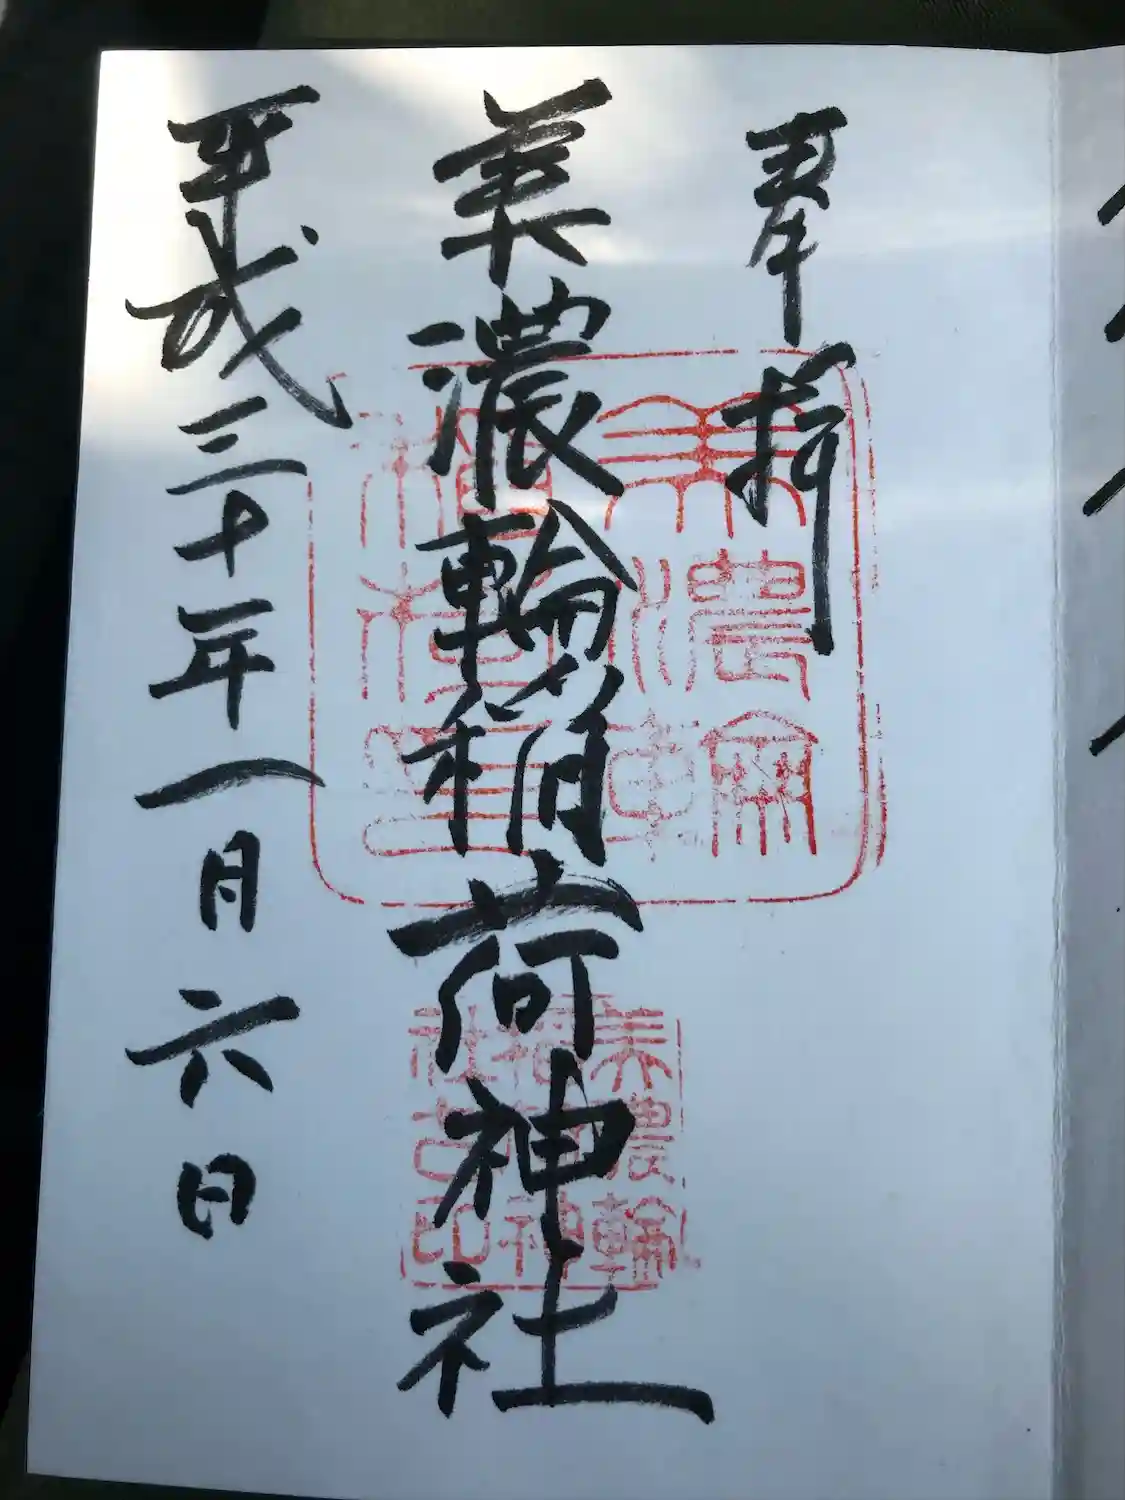 奉拝
美濃輪稲荷神社
平成三十年一月六日
美濃輪
稲荷神
社之印